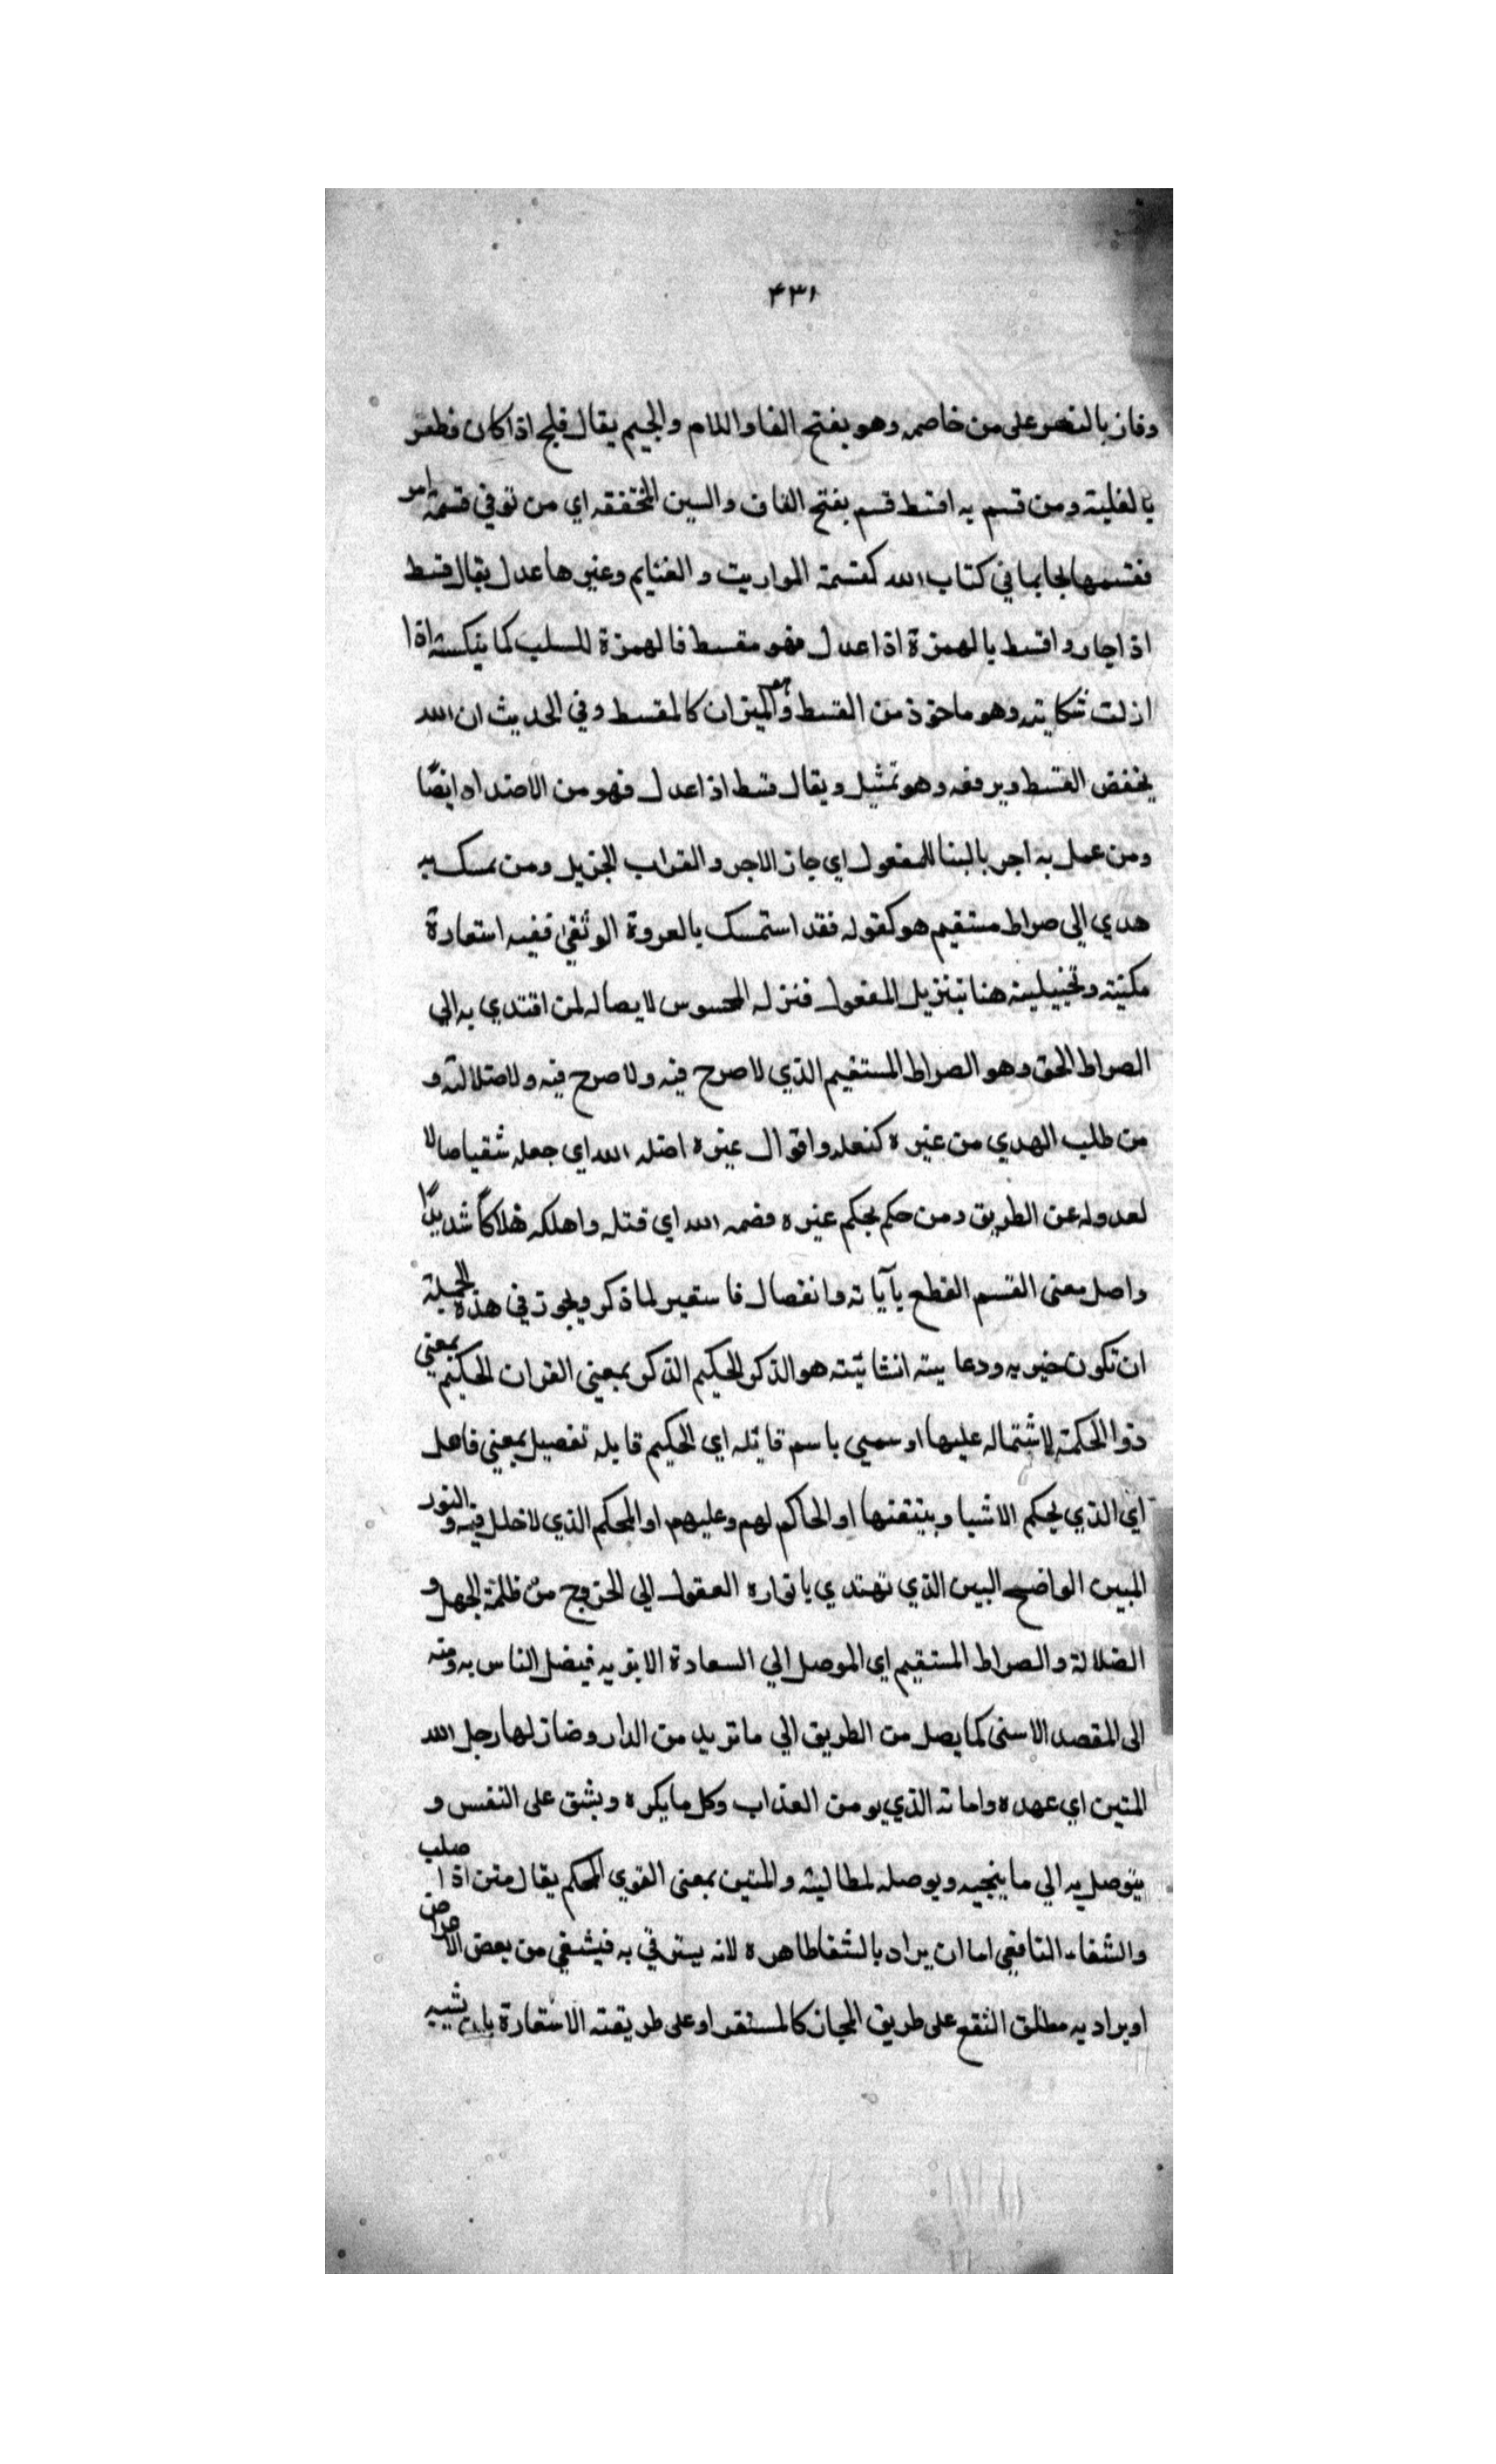 ۴۳۱
وفاز بالنصر على من خاصمه وهو بفتح الفا واللام والجيم يقال فلج اذا كان وظفر
بالغلبة ومن قسم به اقسط قسم بفتح القاف والسين المخففة اي من توفي قسمة امر
فقسمها بما في كتاب الله كقسمة المواريث و الغنايم وغيرها عدل يقال قسط
اذا جار واقسط بالهمزة اذا عدل فهو مقسط فالهمزة للسلب كما اذا
ازلت شكايته وهو ماخوذ من القسط وهو الميزان كالمقسط وفي الحديث ان الله
يخفض القسط ويرفعه وهو تمثيل ويقال قسط اذا عدل فهو من الاضداد ايضًا
ومن عمل به اجر بالبنا للمفعول اي جاز الاجر و الثواب الجزيل ومن تمسك به
هدي الي صراط مستقيم هو كقوله فقد استمسك بالعروة الوثقى ففيه استعارة
مكنية وتخييلية هنا بتنزيل المفعول فنزله المحسوس لايصاله لمن اقتدي به الي
الصراط الحق وهو الصراط المستقيم الذي لا صرح فيه ولا صرح فيه ولا ضلالة و
من طلب الهدي من غيره كنعله واقوال غيره اضله الله اي جعله شقيا ضالا
لعدوله عن الطريق ومن حكم بحكم غيره قصمه الله اي قتله واهلكه هلاكًا شديدًا
واصل معنى القسم القطع بآياته وانفصال فاستعير لما ذكر ويجوز في هذه الجملة
ان تكون خبريه ودعاييته انشائيته هو الذكر الحكيم الذكر بمعني القران الحكيم بمعني
ذوا الحكمة لاشتماله عليها او سمي باسم قائله اي الحكيم قايله تفصيل بمعني فاعل
اي الذي يحكم الاشيا ويتقنها او الحاكم لهم وعليهم او المحكم الذي لاخلل فيه و النور
المبين الواضح البين الذي تهتدي بانواره العقول الي الخروج من ظلمة الجهل و
الضلالة والصراط المستقيم اي الموصل الي السعادة الابديه فيضل الناس به ومنه
الى المقصد الاسنى كما يصل من الطريق الي ما تريد من الدار وضاز لها رجل الله
المتين اي عهده وامانه الذي يومن العذاب وكل ما يكره ويشق على النفس و
يتوصل به الي ما ينجيه ويوصله لمطالبه والمتين بمعنى القوي المحكم يقال متن اذا صلب
والشفاء النافعي اما ان يراد بالشفا ظاهره لانه يسترقي به فيشفي من بعض الامراض
او يراد به مطلق النفع على طريق المجاز كالمستفر او على طريقته الاستعارة تشبيه